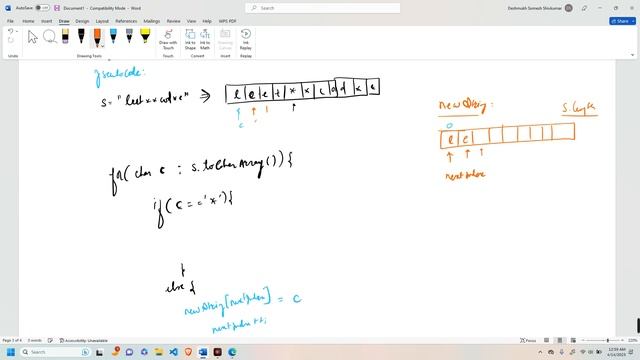 AutoSave
Document1 - Compatibility Mode - Word
Search
Deshmukh Somesh Shivkumar
File Home Insert Draw Design Layout References Mailings Review View Help WPS PDF
Draw with Touch
Ink to Shape
Ink to Math
Drawing Canvas
Ink Replay
Drawing Tools
Convert
Insert
Replay
pseudocode:
S= "leet**cod*e" ⇒ l e e t * * c o d * e
c
new String: S.length
0
l e
next place
for( char c : S.toCharArray()){
if( c == '*'){
}
else {
newString[nextplace] = c
nextplace++;
Page 3 of 4 3 words Accessibility: Unavailable
Search
12:59 AM
4/14/2023